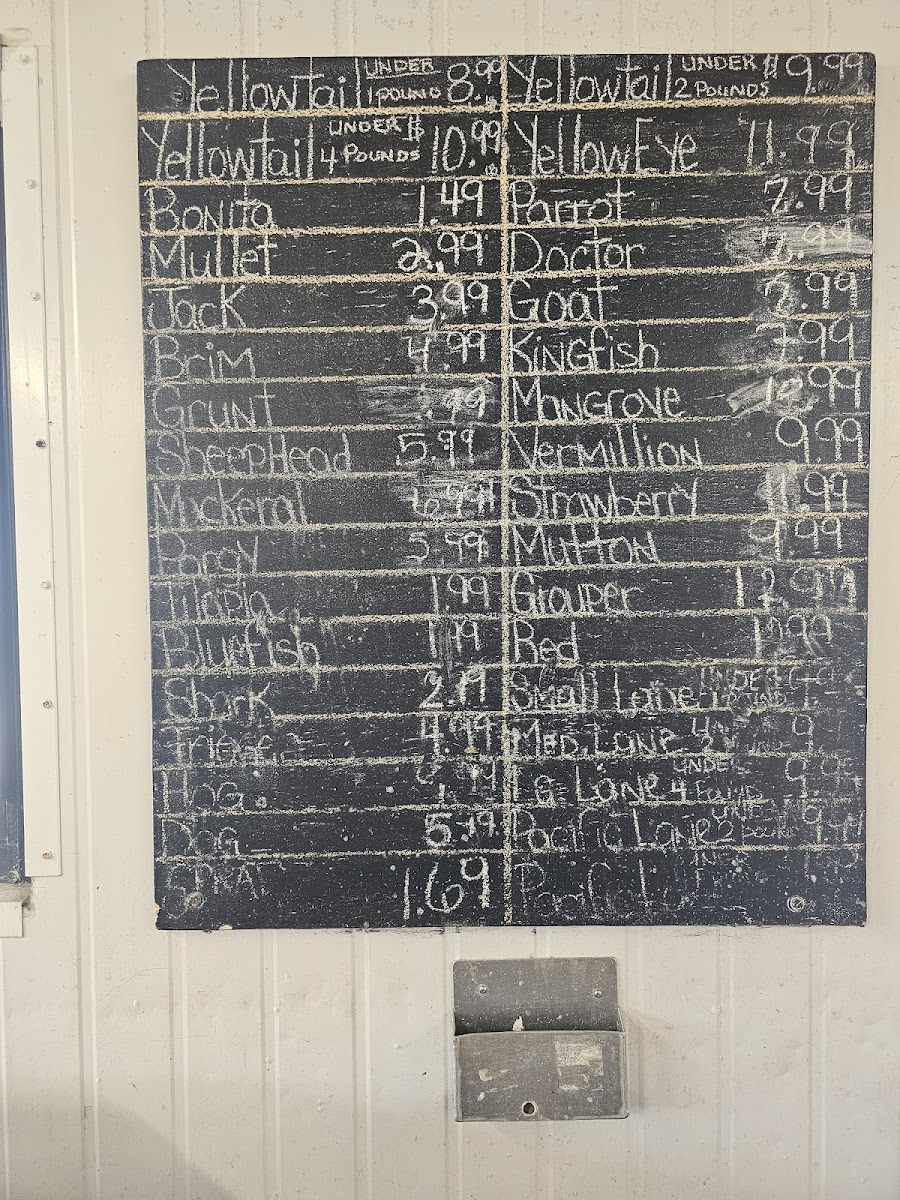 Yellowtail UNDER 1 POUND 8.99
Yellowtail UNDER 2 POUNDS $9.99
Yellowtail UNDER 4 POUNDS $10.99
YellowEye 11.99
Bonita 1.49
Parrot 7.99
Mullet 2.99
Doctor .99
Jack 3.99
Goat 2.99
Brim 4.99
Kingfish 7.99
Grunt .99
Mangrove 10.99
SheepHead 5.99
Vermillion 9.99
Mackeral 6.99
Strawberry 11.99
Porgy 5.99
Mutton 9.99
Tilapia 1.99
Grouper 12.99
Bluefish 1.99
Red 11.99
Shark 2.99
Small Lane UNDER
4.99
Med. Lane 9
Hog
LG Lane UNDER 4 Pounds 9.99
Dog 5.99
Pacific Lane 2 pound 9.99
1.69
Pacific